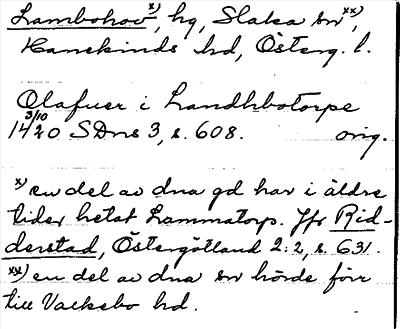 Lambohov x), hg, Slaka sn xx),
Hanekinds hd, Österg. l.
Olafuer i Landhbotorpe
14 3/10 20 SDns 3, s. 608. orig.
x) en del av dna gd har i äldre
tider hetat Lammatorp. Jfr Rid-
derstad, Östergötland 2:2, s. 631.
xx) en del av dna sn hörde förr
till Valkebo hd.